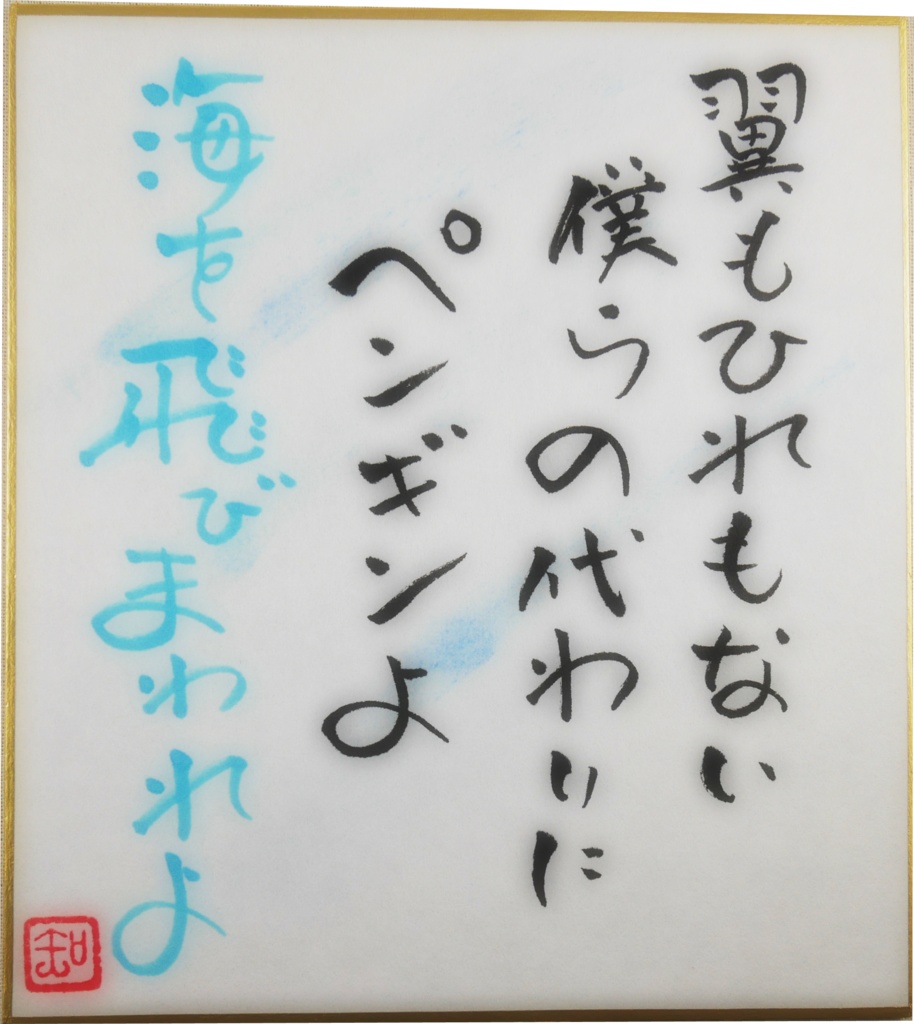 翼もひれもない
僕らの代わりに
ペンギンよ
海を飛びまわれよ
知